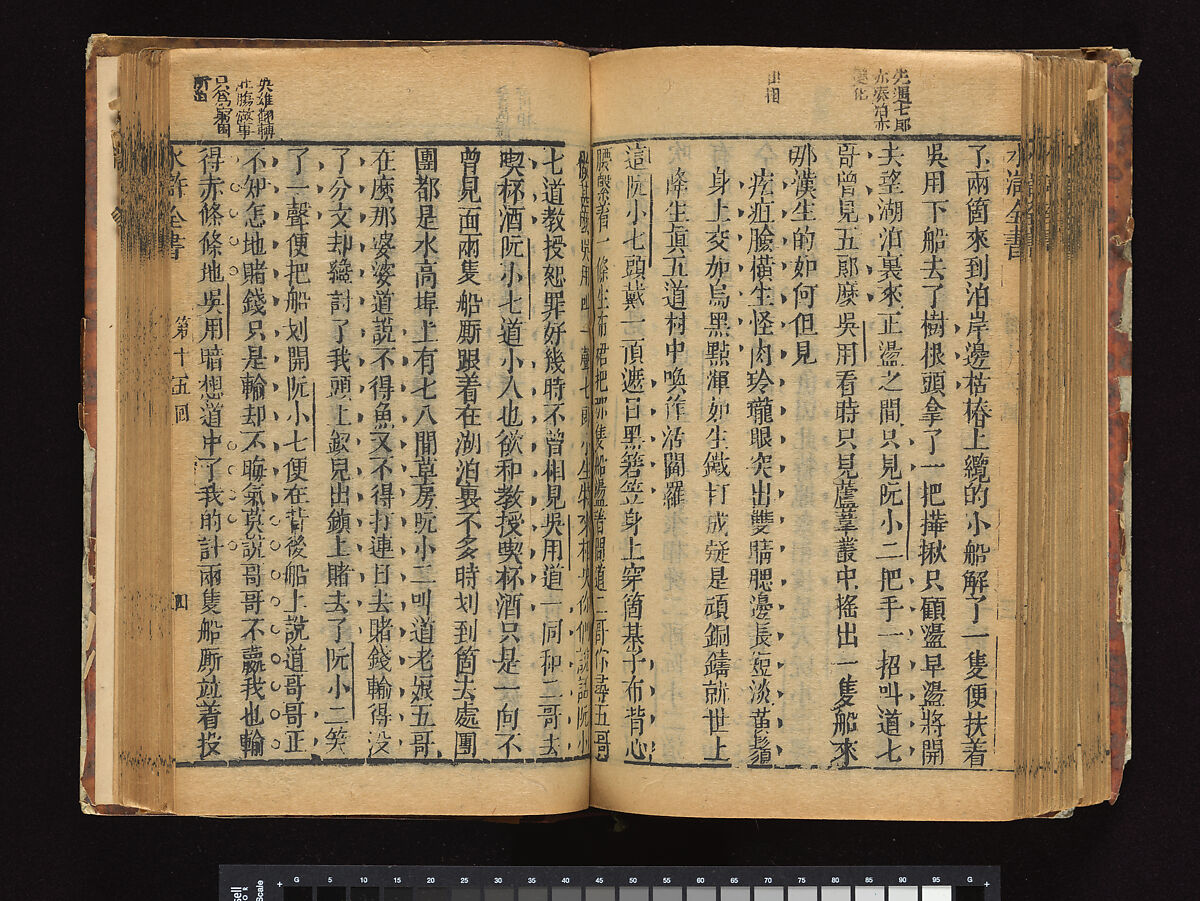 先遇七郎
亦蕩泊亦
變化
出相
水滸全書
了兩箇來到泊岸邊枯樁上纜的小船解了一隻便扶着
吳用下船去了樹根頭拿了一把樺揪只顧盪早盪將開
去望湖泊裏來正盪之間只見阮小二把手一招叫道七
哥曾見五郎麽吳用看時只見蘆葦叢中搖出一隻船來
那漢生的如何但見
疙疸臉橫生怪肉玲瓏眼突出雙睛腮邊長短淡黃鬚
身上交加烏黑點渾如生鐵打成疑是頑銅鑄就世上
降生眞五道村中喚作活閻羅
這阮小七頭戴一頂遮日黑箬笠身上穿箇棊子布背心
腰繫着一條生布裙把那隻船盪着問道二哥你尋五哥
吳用叫一聲七郎小生特來相央你們說話阮小
七道教授恕罪好幾時不曾相見吳用道一同和二哥去
喫杯酒阮小七道小人也欲和教授喫杯酒只是一向不
曾見面兩隻船厮跟着在湖泊裏不多時划到箇去處團
團都是水高埠上有七八間草房阮小二叫道老娘五哥
在麽那婆婆道說不得魚又不得打連日去賭錢輸得沒
了分文却纔討了我頭上釵兒出鎮上賭去了阮小二笑
了一聲便把船划開阮小七便在背後船上說道哥哥正
不知怎地賭錢只是輸却不晦氣莫說哥哥不贏我也輸
得赤條條地吳用暗想道中了我的計兩隻船厮竝着投
英雄
做事
只爲窮困
所
水滸全書 第十五回 四